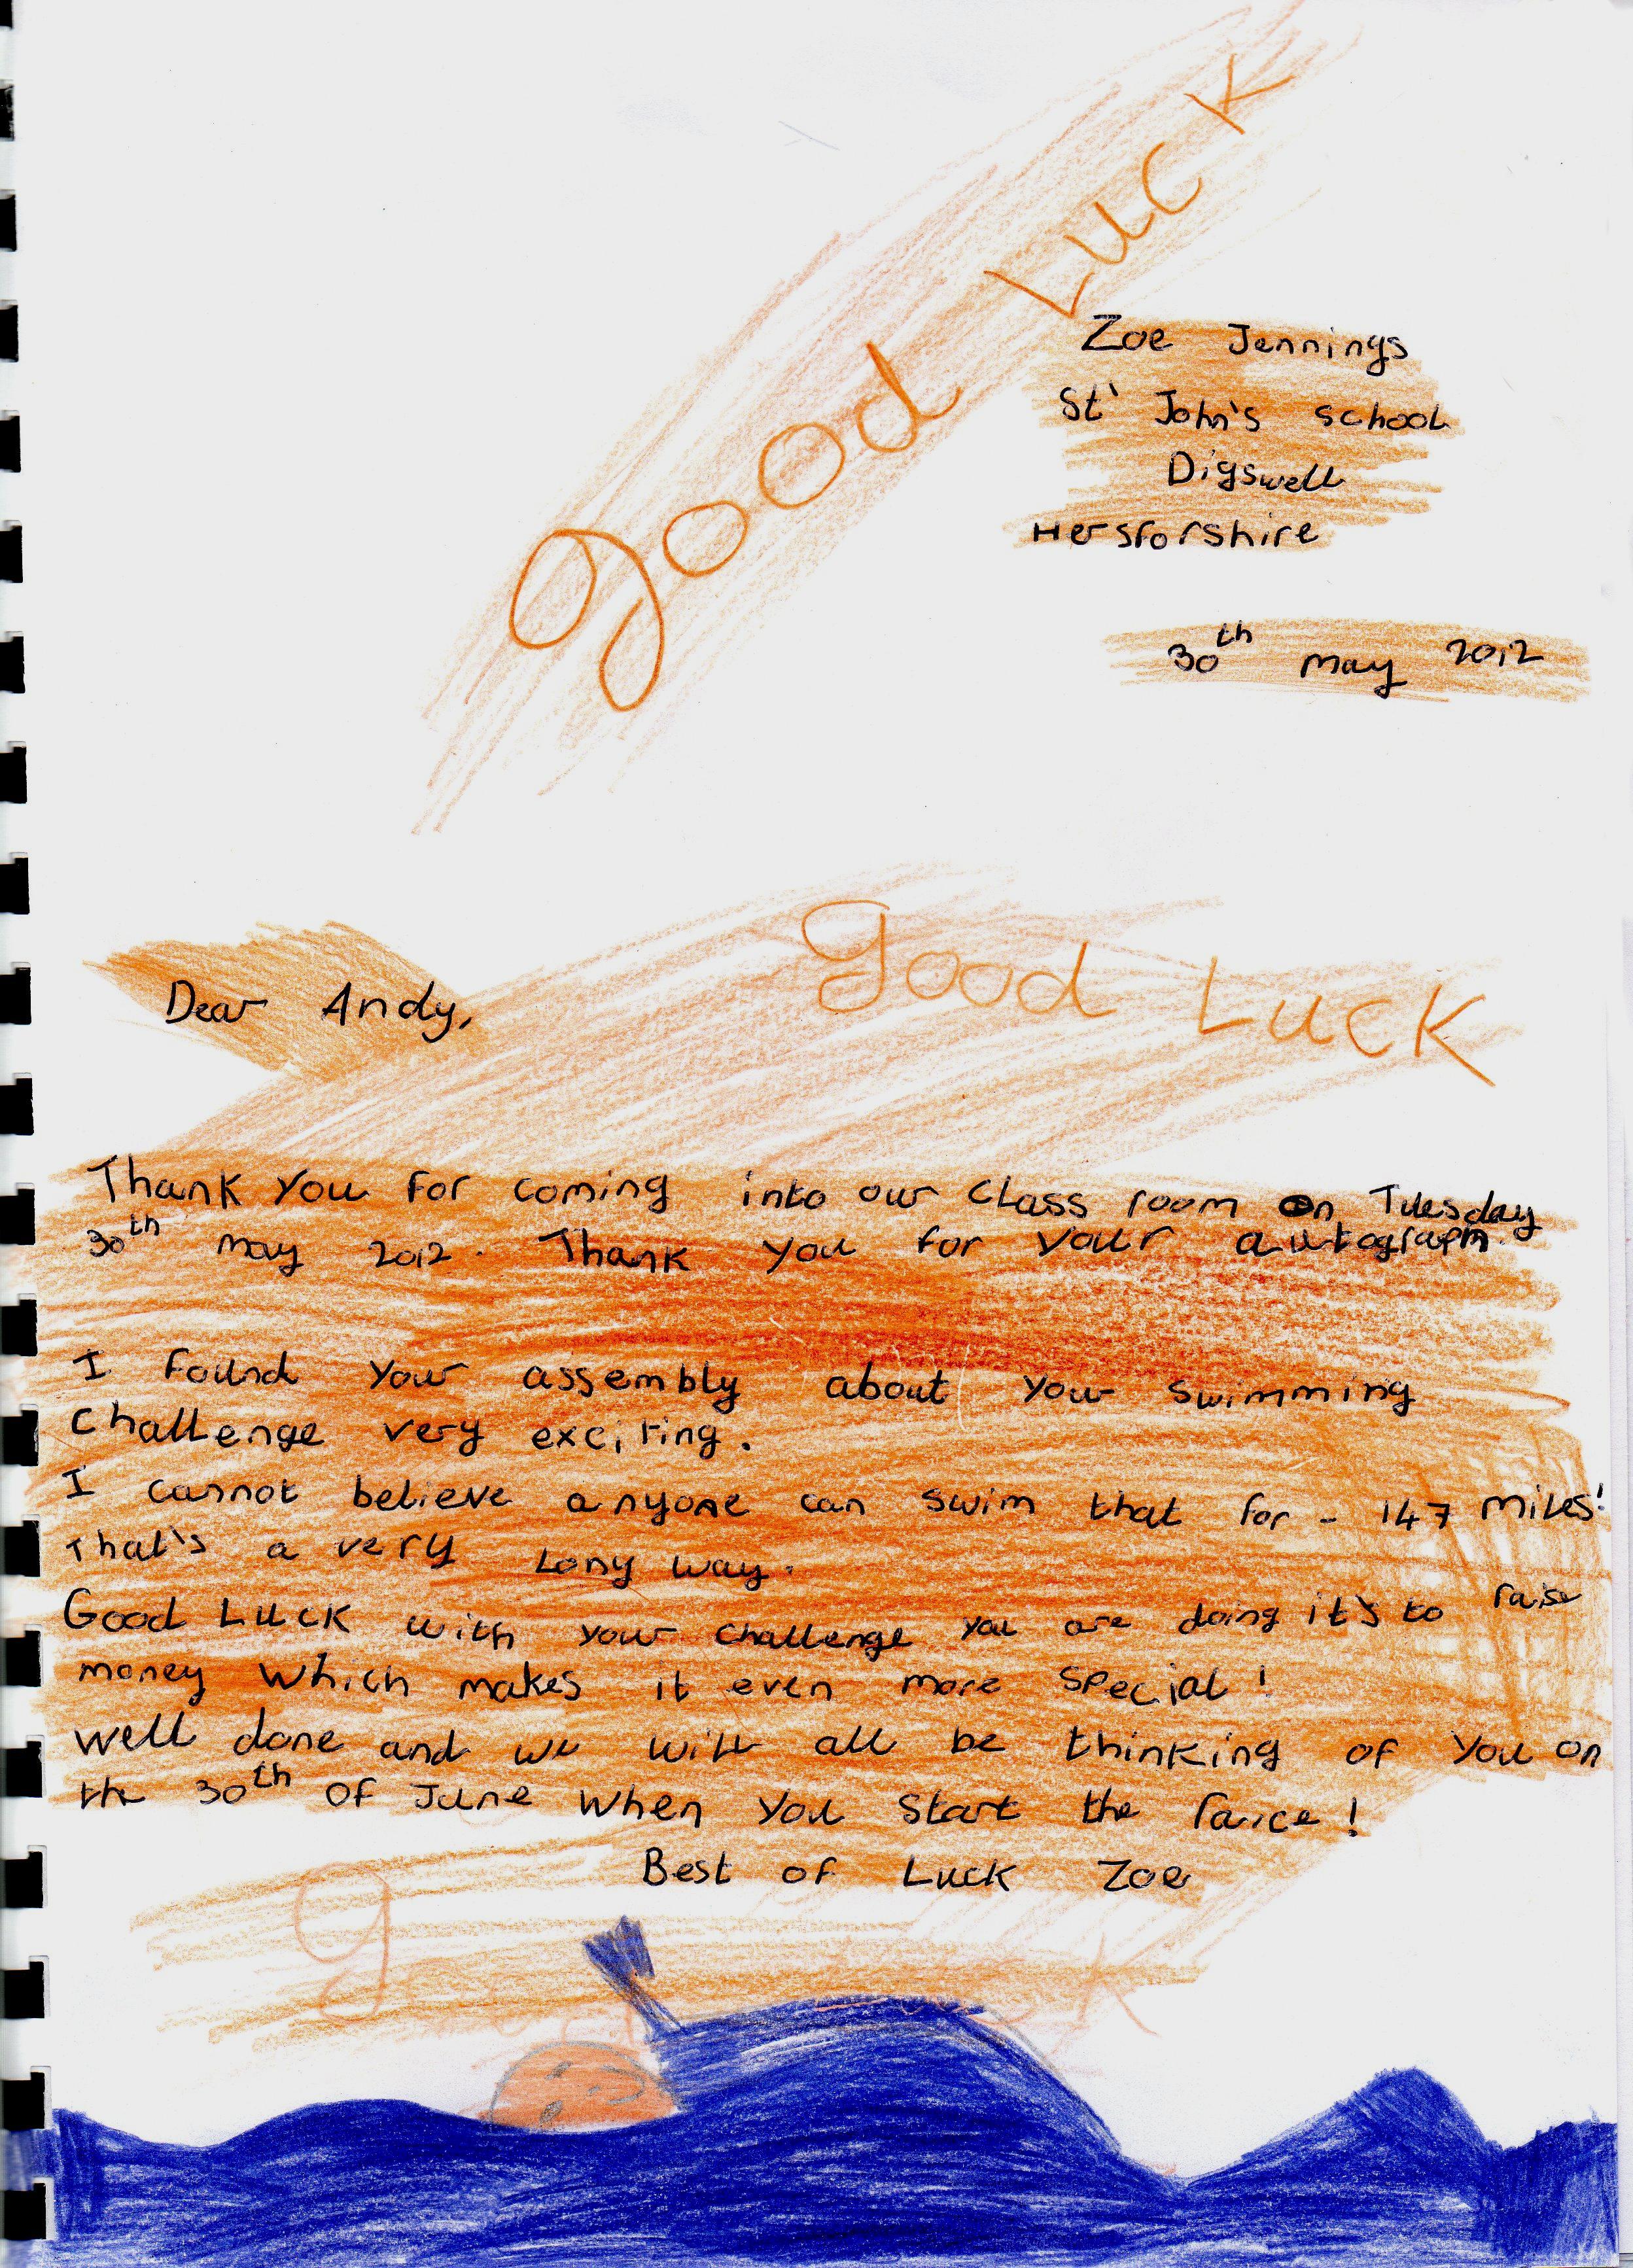 good Luck
Zoe Jennings
St' John's school
Digswell
Hersforshire
30th may 2012
good Luck
Dear Andy,
Thank you for coming into our class room on Tuesday
30th may 2012. Thank you for your autograph.
I found your assembly about your swimming
challenge very exciting.
I cannot believe anyone can swim that for - 147 miles!
That's a very long way.
Good Luck with your challenge you are doing it's to raise
money which makes it even more special!
well done and we will all be thinking of you on
the 30th of June when you start the raice!
Best of Luck Zoe